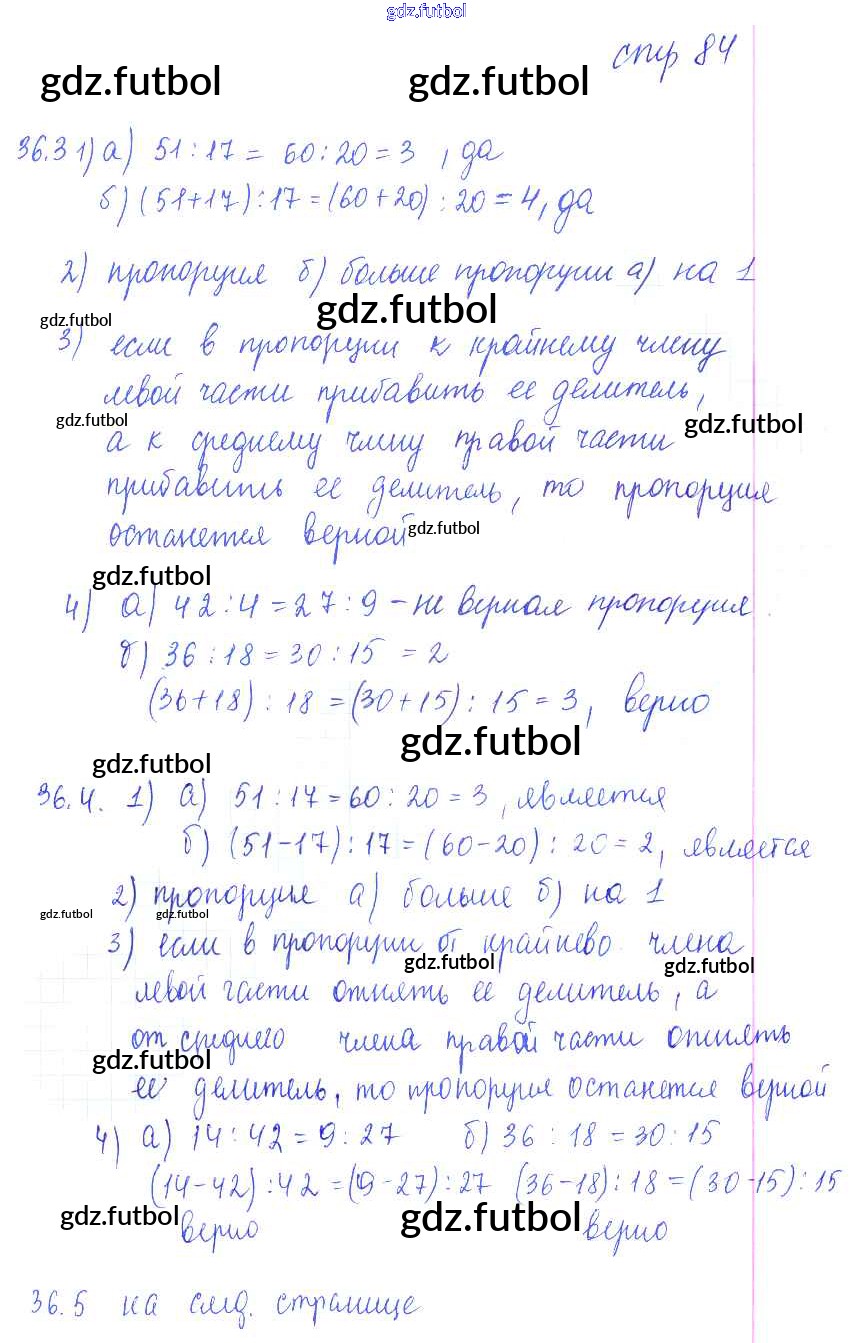 gdz.futbol
стр 84
gdz.futbol gdz.futbol
36.3 1) а) 51 : 17 = 60 : 20 = 3 , да
б) (51+17) : 17 = (60+20) : 20 = 4, да
2) пропорция б) больше пропорции а) на 1
gdz.futbol gdz.futbol
3) если в пропорции к крайнему члену
левой части прибавить ее делитель,
gdz.futbol gdz.futbol
а к среднему члену правой части
прибавить ее делитель, то пропорция
останется верной
gdz.futbol
gdz.futbol
4) а) 42 : 4 = 27 : 9 – не верная пропорция
б) 36 : 18 = 30 : 15 = 2
(36+18) : 18 = (30+15) : 15 = 3, верно
gdz.futbol
gdz.futbol
36.4. 1) а) 51 : 17 = 60 : 20 = 3 , является
б) (51-17) : 17 = (60-20) : 20 = 2, является
2) пропорция а) больше б) на 1
gdz.futbol gdz.futbol
3) если в пропорции от крайнево члена
gdz.futbol gdz.futbol
левой части отнять ее делитель, а
от среднего члена правой части отнять
gdz.futbol
ее делитель, то пропорция останется верной
4) а) 14 : 42 = 9 : 27 б) 36 : 18 = 30 : 15
(14-42) : 42 = (9-27) : 27 (36-18) : 18 = (30-15) : 15
gdz.futbol gdz.futbol
верно верно
36.5 на след. странице